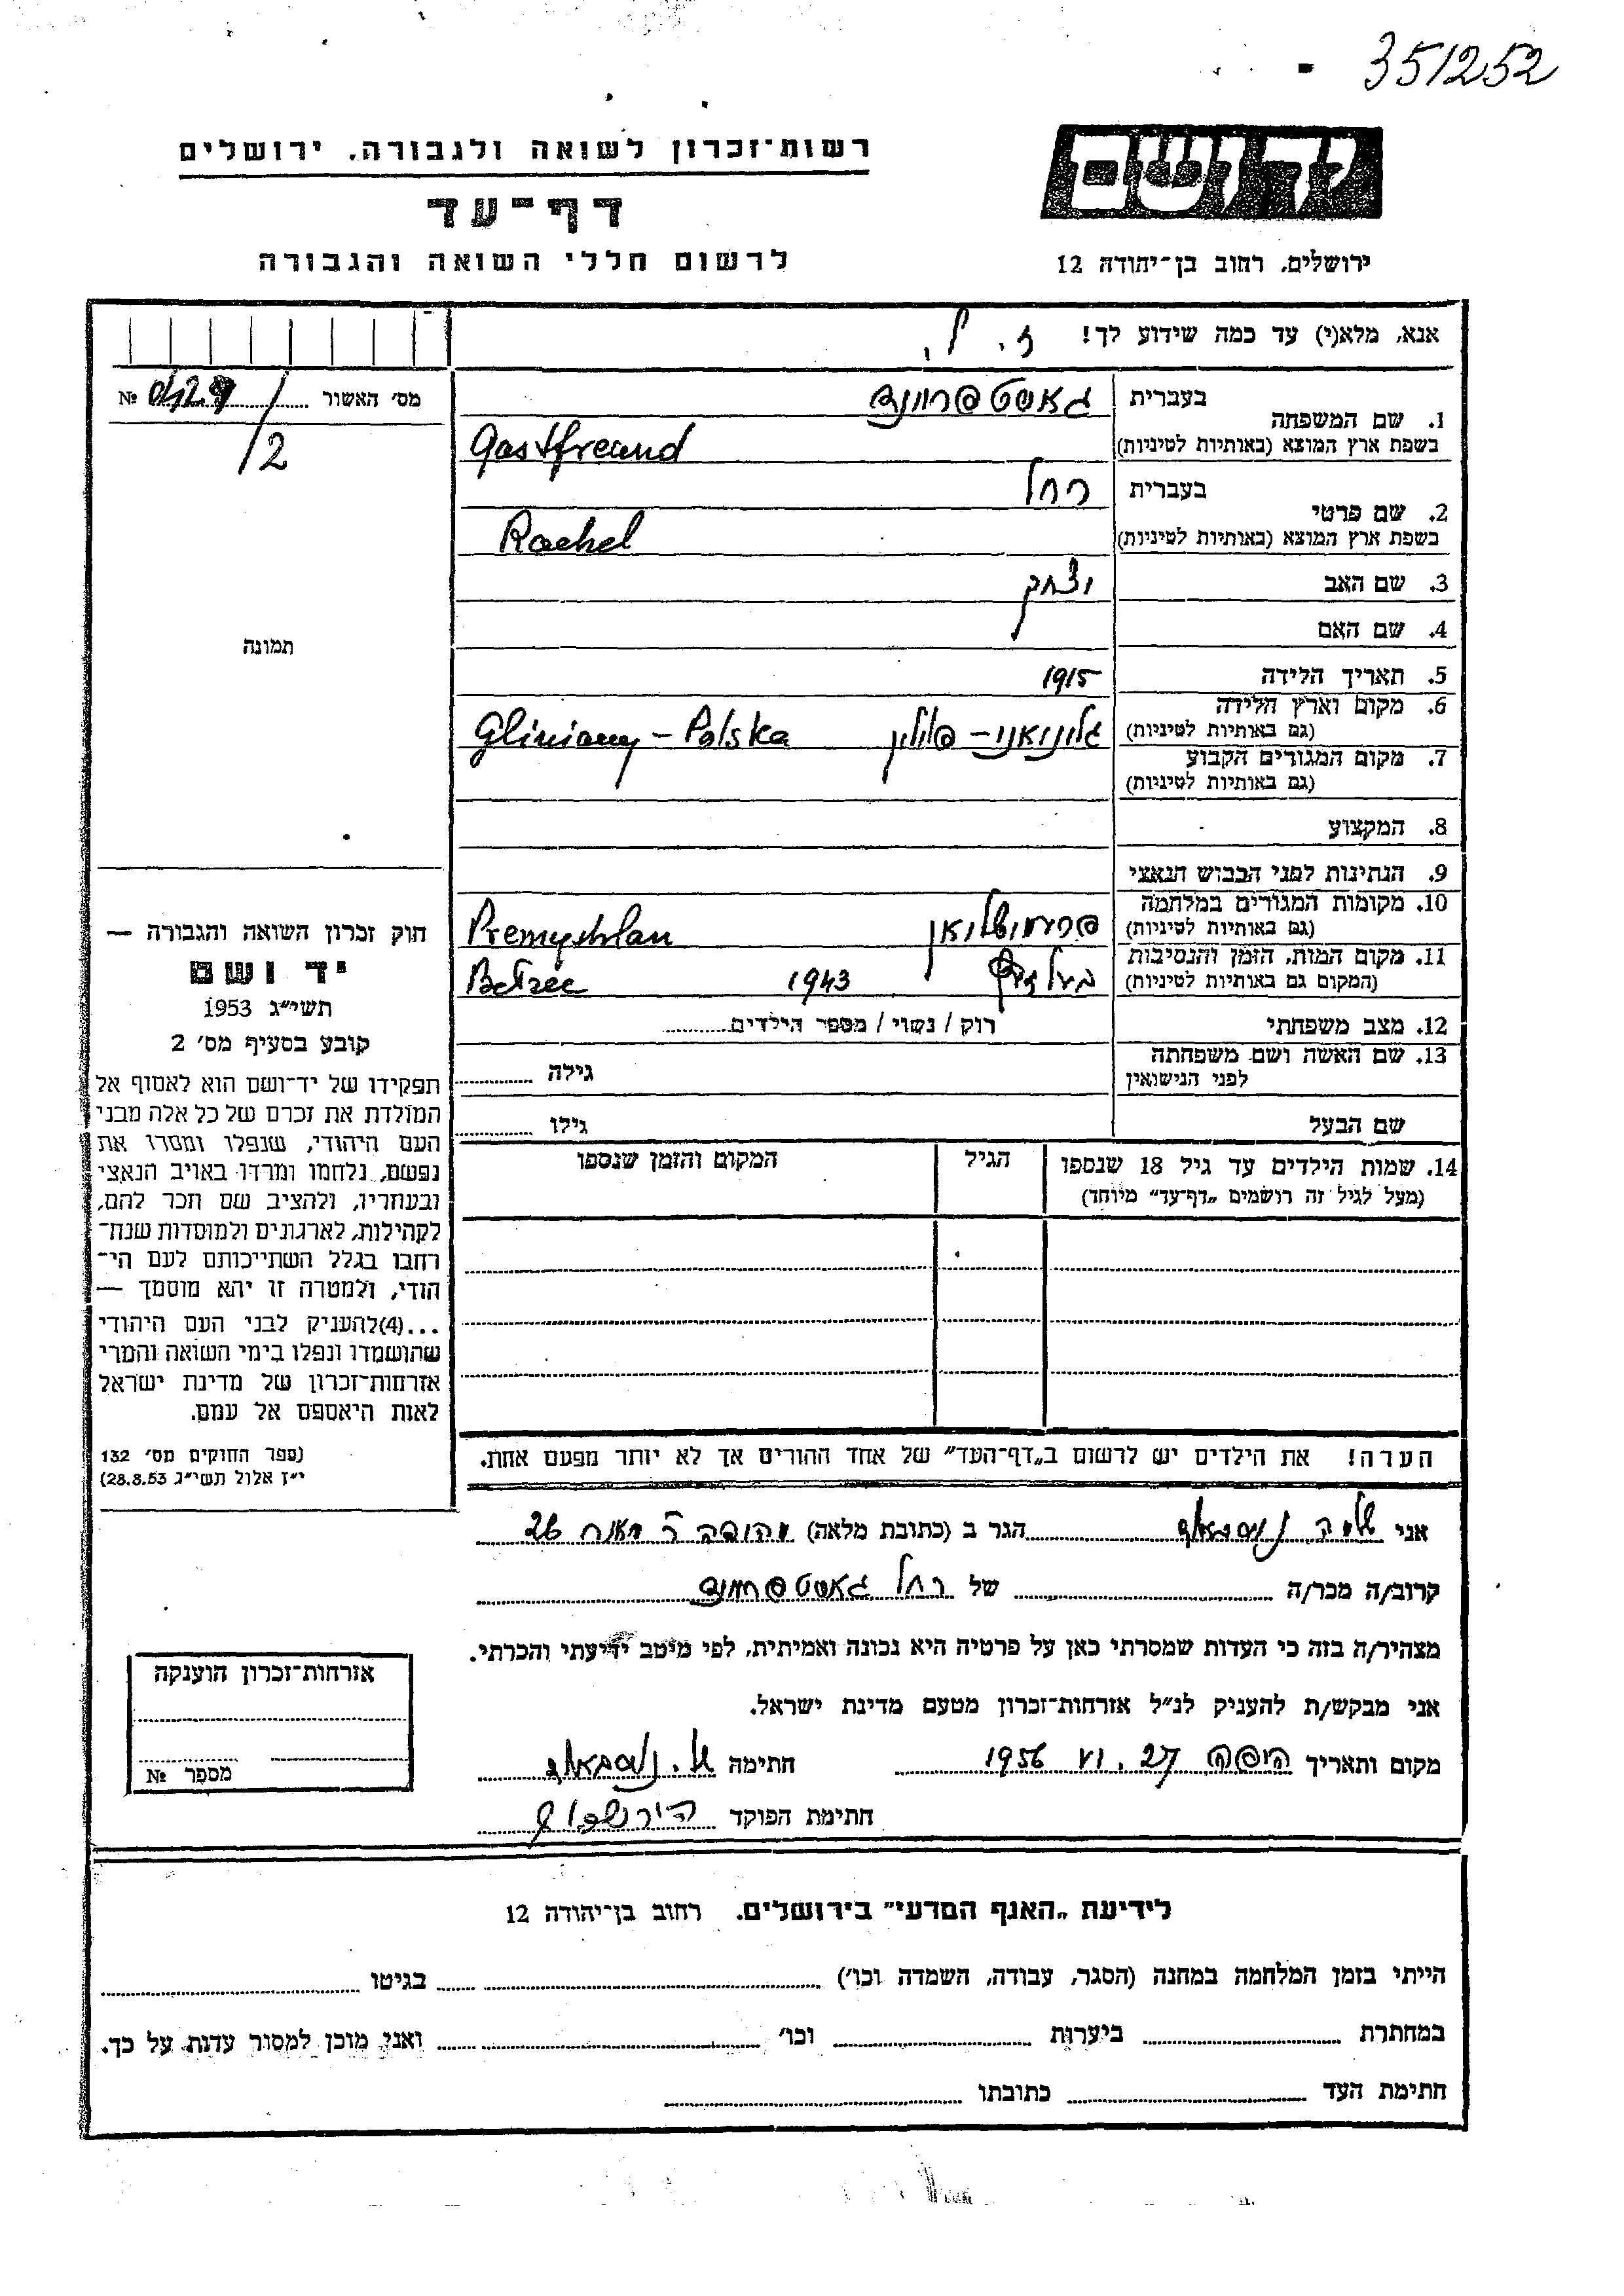 351252
יד ושם
ירושלים, רחוב בן־יהודה 12
רשות־זכרון לשואה ולגבורה, ירושלים
דף־עד
לרשום חללי השואה והגבורה
אנא, מלא(י) עד כמה שידוע לך!
מס׳ האשור № 0429/2
תמונה
1. שם המשפחה
בעברית גאסטפרוינד
בשפת ארץ המוצא (באותיות לטיניות) Gastfreund
2. שם פרטי
בעברית רחל
בשפת ארץ המוצא (באותיות לטיניות) Rachel
3. שם האב יצחק
4. שם האם
5. תאריך הלידה 1915
6. מקום וארץ הלידה גליניאני – פולין Gliniany – Polska
(גם באותיות לטיניות)
7. מקום המגורים הקבוע
(גם באותיות לטיניות)
8. המקצוע
9. הנתינות לפני הכבוש הנאצי
10. מקומות המגורים במלחמה Premyshlan
(גם באותיות לטיניות)
11. מקום המות, הזמן והנסיבות 1943 Bełzec
(המקום גם באותיות לטיניות)
12. מצב משפחתי רוק / נשוי / מספר הילדים
13. שם האשה ושם משפחתה
לפני הנישואין גילה
שם הבעל גילו
14. שמות הילדים עד גיל 18 שנספו הגיל המקום והזמן שנספו
(מעל לגיל זה רושמים „דף־עד״ מיוחד)
הערה! את הילדים יש לרשום ב„דף־העד״ של אחד ההורים אך לא יותר מפעם אחת.
חוק זכרון השואה והגבורה —
יד ושם
תשי״ג 1953
קובע בסעיף מס׳ 2
תפקידו של יד־ושם הוא לאסוף אל
המולדת את זכרם של כל אלה מבני
העם היהודי, שנפלו ומסרו את
נפשם, נלחמו ומרדו באויב הנאצי
ובעוזריו, ולהציב שם וזכר להם,
לקהילות, לארגונים ולמוסדות שנח־
רבו בגלל השתייכותם לעם הי־
הודי, ולמטרה זו יהא מוסמך —
...(4)להעניק לבני העם היהודי
שהושמדו ונפלו בימי השואה והמרי
אזרחות־זכרון של מדינת ישראל
לאות היאספם אל עמם.
(ספר החוקים מס׳ 132
י״ז אלול תשי״ג 28.8.53)
אני הגר ב (כתובת מלאה) 26
קרוב/ה מכר/ה של רחל גאסטפרוינד
מצהיר/ה בזה כי העדות שמסרתי כאן על פרטיה היא נכונה ואמיתית, לפי מיטב ידיעתי והכרתי.
אני מבקש/ת להעניק לנ״ל אזרחות־זכרון מטעם מדינת ישראל.
מקום ותאריך חיפה 27. VI 1956 חתימה
חתימת הפוקד
אזרחות־זכרון הוענקה
מספר №
לידיעת „האגף המדעי״ בירושלים. רחוב בן־יהודה 12
הייתי בזמן המלחמה במחנה (הסגר, עבודה, השמדה וכו׳) בגיטו
במחתרת ביערות וכו׳ ואני מוכן למסור עדות על כך.
חתימת העד כתובתו